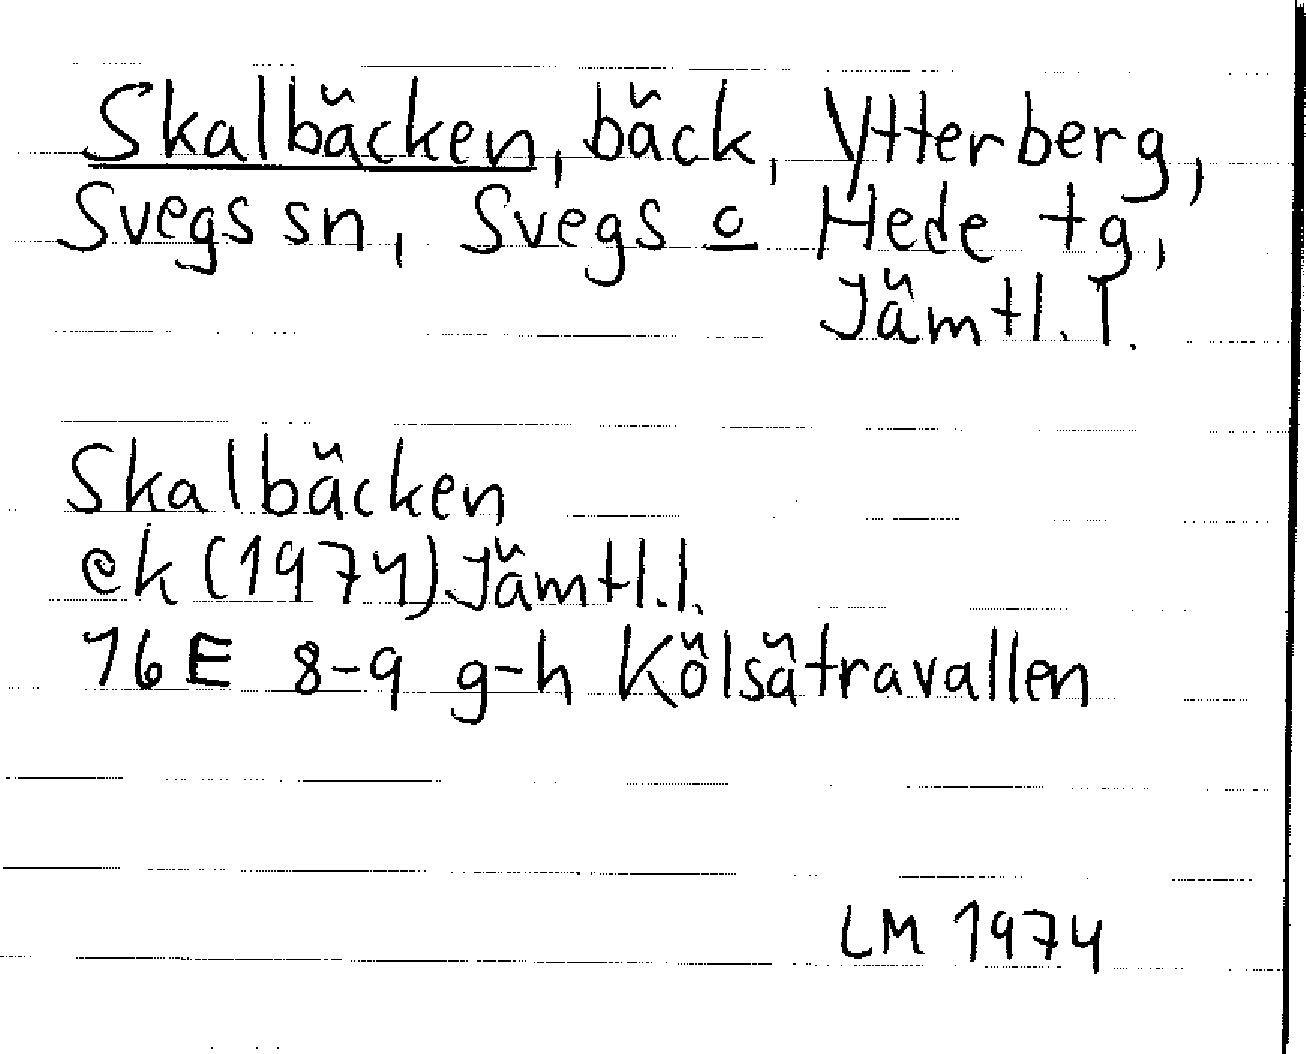 Skalbäcken, bäck, Ytterberg,
Svegs sn, Svegs o Hede tg,
Jämtl. l.
Skalbäcken
ek (1974) Jämtl. l.
16E 8-9 g-h Kölsätravallen
LM 1974